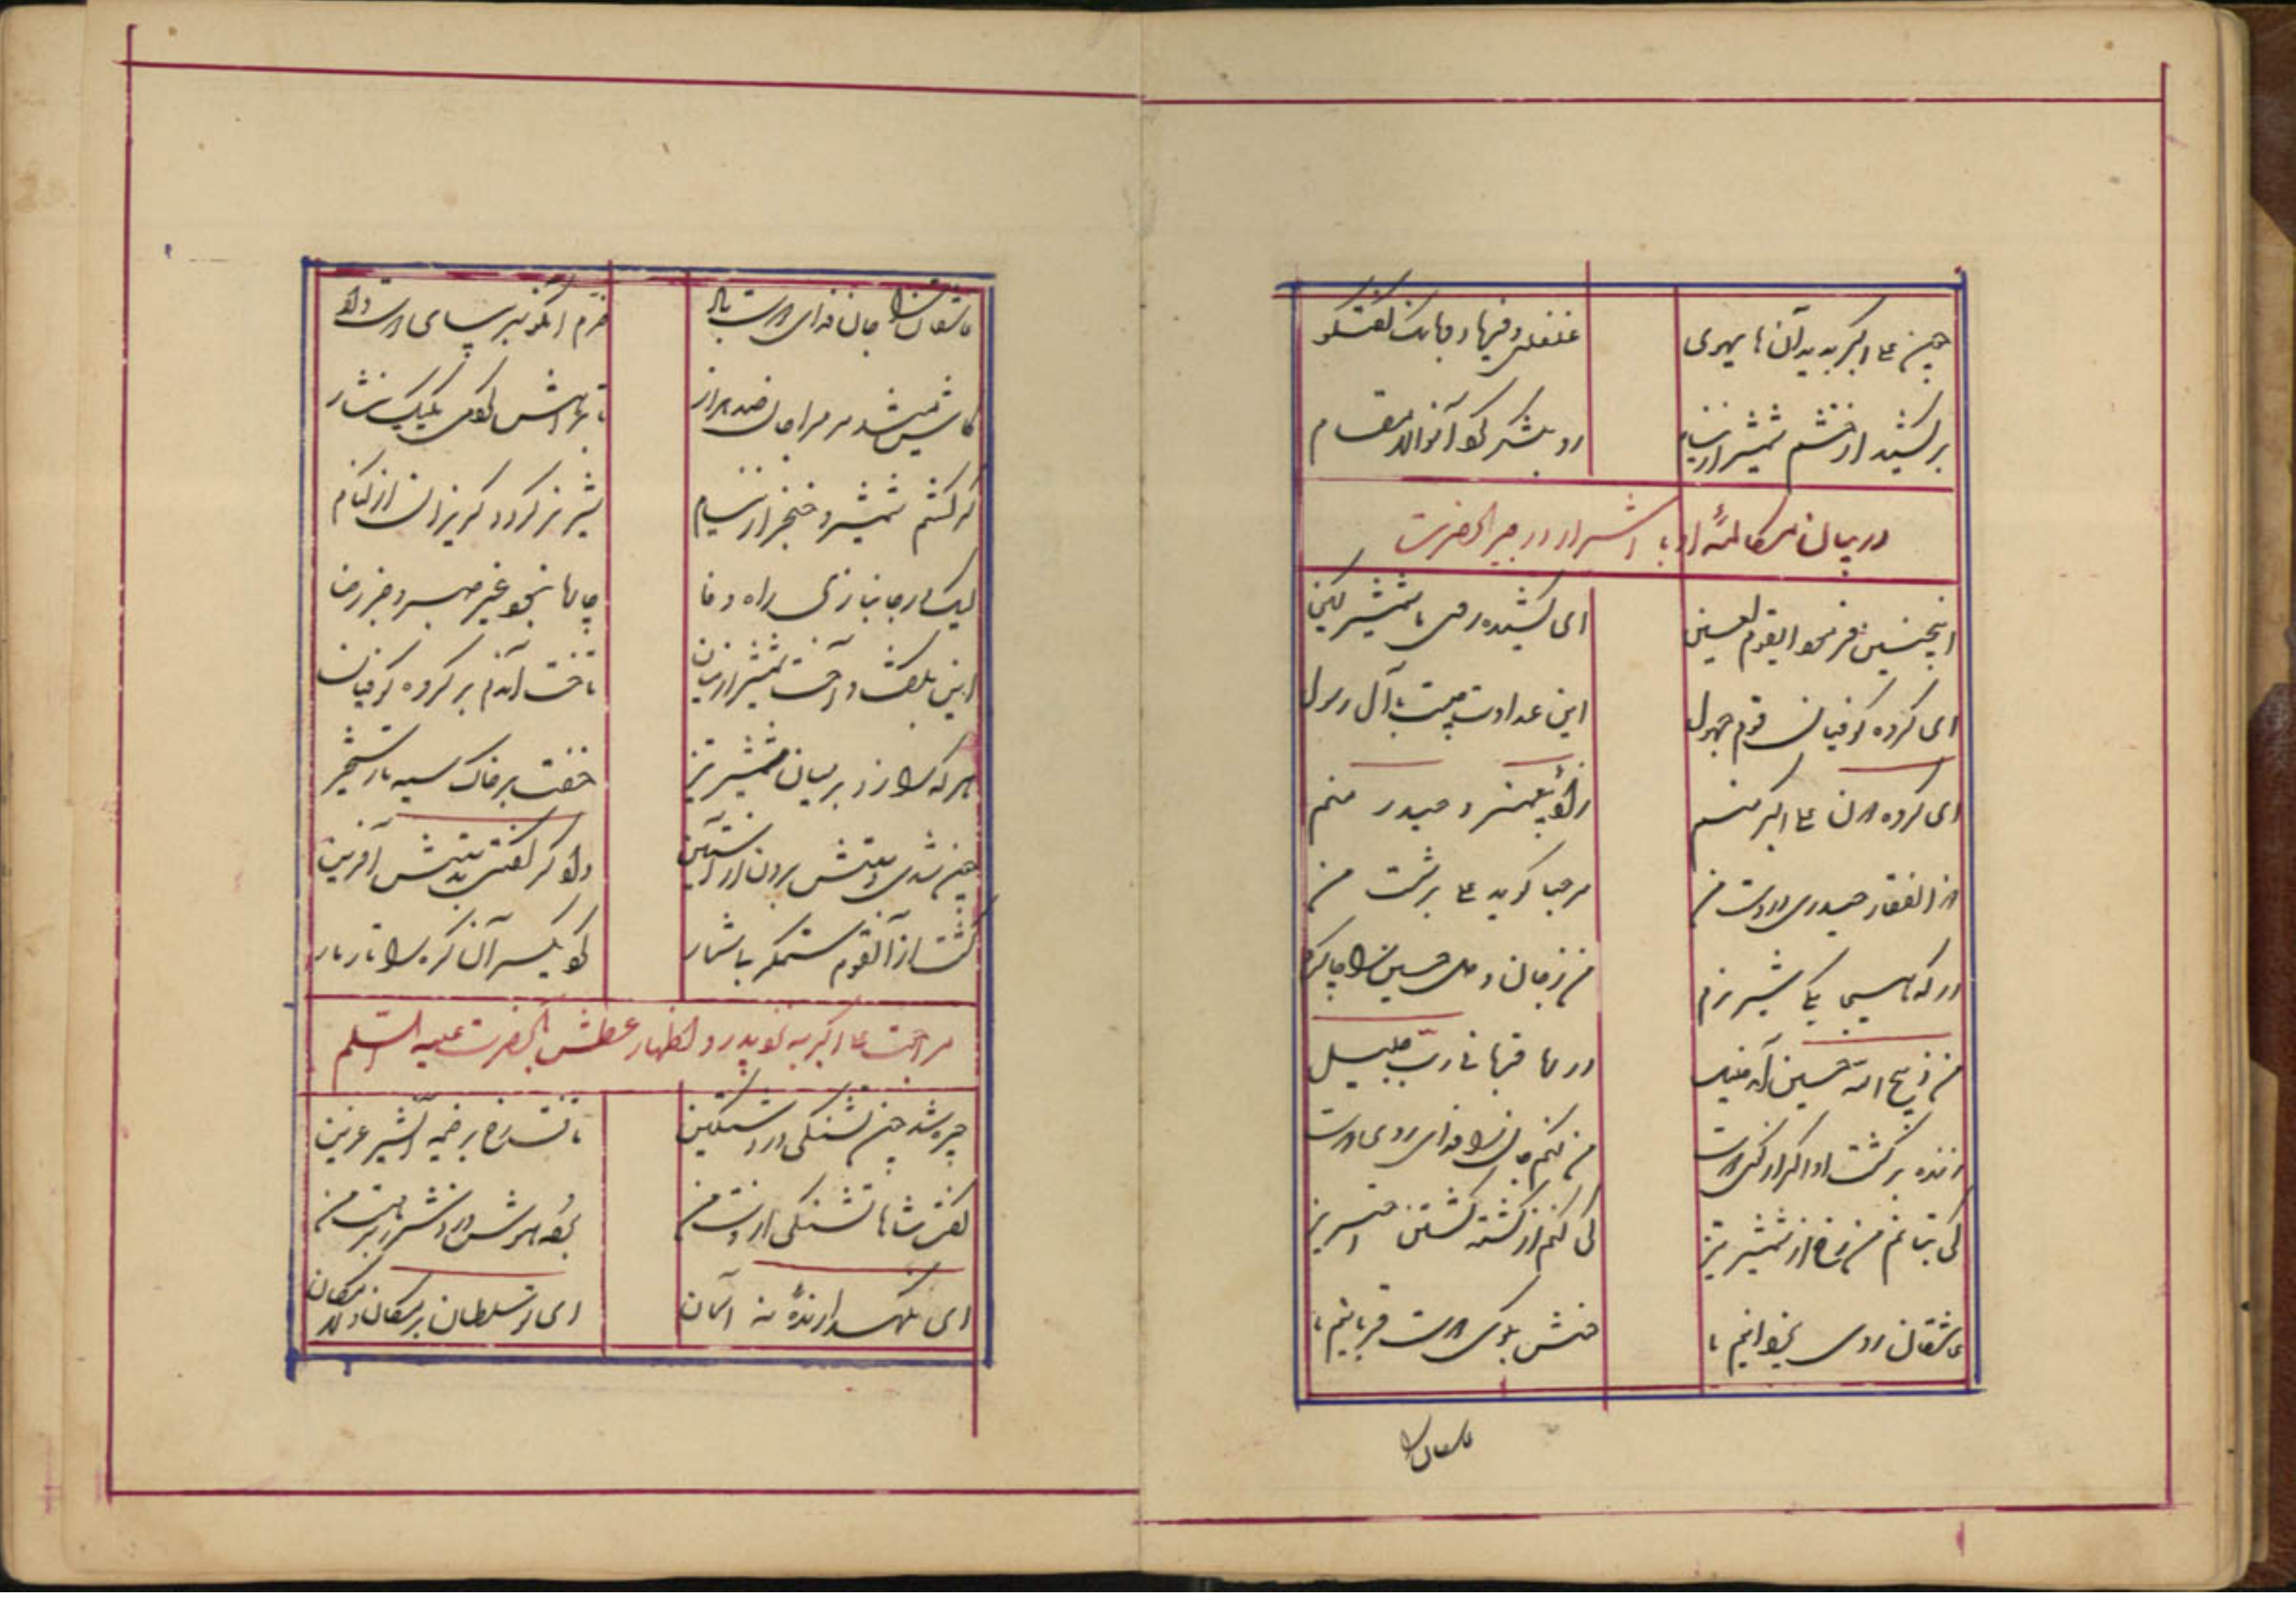 چون علی اکبر بدید آن های هوی
غلغل و فریاد و بانگ گفتگو
برکشید از خشم شمشیر از نیام
رو بلشکر کرد آن والا مقام
در بیان مکالمهٔ او با اشرار و رجز آنحضرت
اینچنین فرمود ایقوم لعین
ای کشیده روی ما شمشیر کین
ای گروه کوفیان قوم جهول
این عداوت چیست با آل رسول
ای گروه دون علی اکبر منم
زادهٔ پیغمبر و حیدر منم
ذوالفقار حیدری در دست من
مرحبا گوید علی بر شست من
در که هیجا یکی شیر نرم
من ز جان و دل حسین را چاکرم
من ذبیح الله حسین آمد خلیل
در منا قربانی رب جلیل
زنده برگشت او اگر از کوی دوست
من کنم جان را فدای روی دوست
کی بتابم من رخ از شمشیر تیز
کی کنم از کشته گشتن احتریز
عاشقان روی یزدانیم ما
خنش بکوی دوست قربانیم ما
عاشقان را
عاشقان را جان فدای دوست باد
خرم آنکو سر بپای دوست داد
کاش میشد مر مرا جان صد هزار
تا براهش کردمی یک یک نثار
گر کشم شمشیر و خنجر از نیام
شیر نر گردد گریزان از کنام
لیک در جانبازی راه وفا
چاره‌ها نبود بغیر صبر و جز رضا
این بگفت و آخت شمشیر از میان
تاخت اندر بر گروه کوفیان
هر که را زد بر میان شمشیر تیز
خفت بر خاک سیه تا رستخیز
چون شدی دستش برون از آستین
داوگر گفتی بدستش آفرین
کشت از آنقوم ستمگر بیشمار
کرد یکسر آن گره را تار و مار
مراجعت علی اکبر به نزد پدر و اظهار عطش آنحضرت علیه السلم
چیره شد چون تشنگی در دشت کین
تافت رخ بر خیمه آن شیر عرین
گفت شاها تشنگی از دست من
برده هوش و دانش و هست من
ای نگهدارندهٔ نه آسمان
ای تو سلطان بر مکان و لامکان